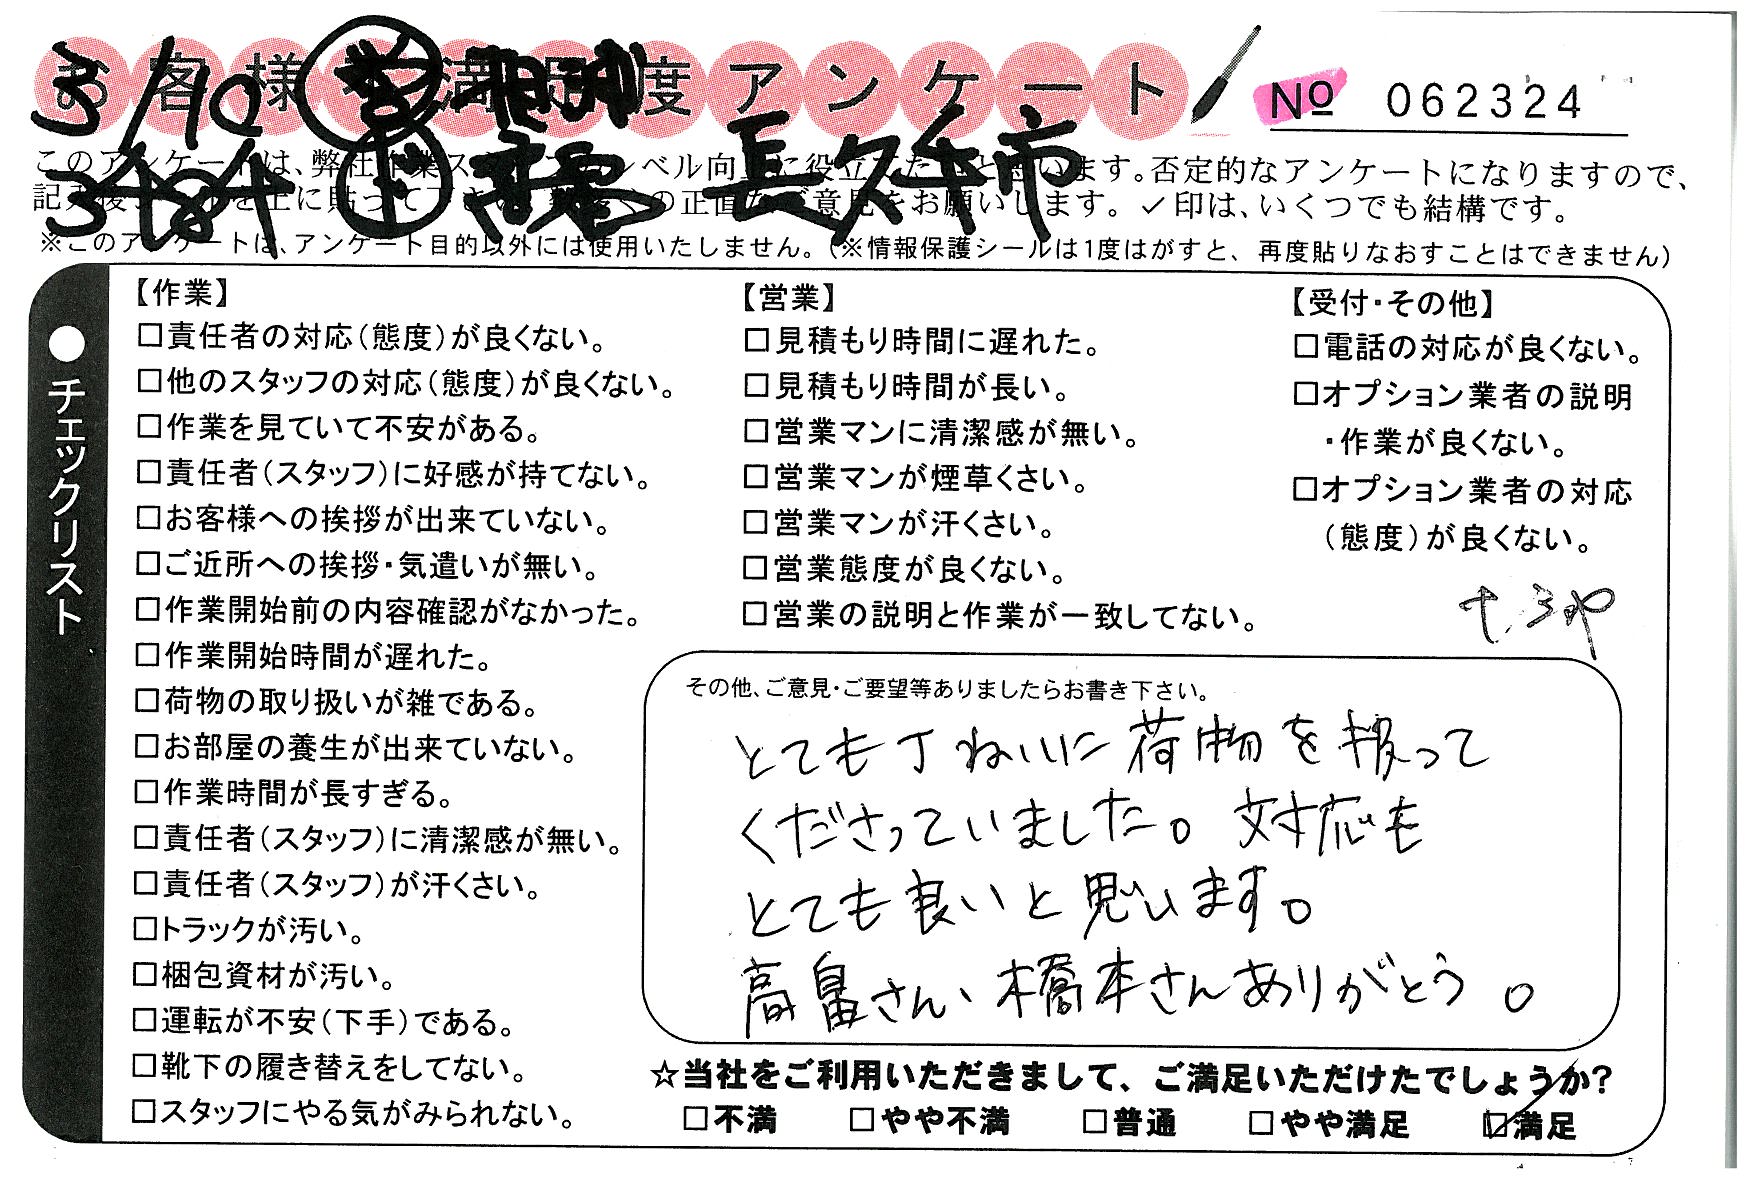 お客様満足度アンケート
№ 062324
3/10 営
384 下 長久手市
このアンケートは、弊社作業スタッフのレベル向上に役立てたいと思います。否定的なアンケートになりますので、
記入後シールを上に貼って下さい。数多くの正直なご意見をお願いします。✓印は、いくつでも結構です。
※このアンケートは、アンケート目的以外には使用いたしません。(※情報保護シールは1度はがすと、再度貼りなおすことはできません)
●チェックリスト
【作業】
□責任者の対応(態度)が良くない。
□他のスタッフの対応(態度)が良くない。
□作業を見ていて不安がある。
□責任者(スタッフ)に好感が持てない。
□お客様への挨拶が出来ていない。
□ご近所への挨拶・気遣いが無い。
□作業開始前の内容確認がなかった。
□作業開始時間が遅れた。
□荷物の取り扱いが雑である。
□お部屋の養生が出来ていない。
□作業時間が長すぎる。
□責任者(スタッフ)に清潔感が無い。
□責任者(スタッフ)が汗くさい。
□トラックが汚い。
□梱包資材が汚い。
□運転が不安(下手)である。
□靴下の履き替えをしてない。
□スタッフにやる気がみられない。
【営業】
□見積もり時間に遅れた。
□見積もり時間が長い。
□営業マンに清潔感が無い。
□営業マンが煙草くさい。
□営業マンが汗くさい。
□営業態度が良くない。
□営業の説明と作業が一致してない。
【受付・その他】
□電話の対応が良くない。
□オプション業者の説明
・作業が良くない。
□オプション業者の対応
(態度)が良くない。
その他、ご意見・ご要望等ありましたらお書き下さい。
とても丁ねいに荷物を扱って
くださっていました。対応も
とても良いと思います。
高畠さん、橋本さんありがとう。
☆当社をご利用いただきまして、ご満足いただけたでしょうか?
□不満 □やや不満 □普通 □やや満足 ☑満足